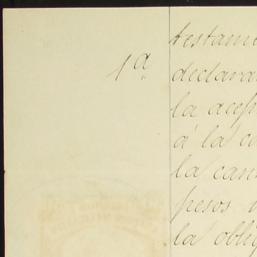 testame
1ª declara
la acep
á la c
la can
pesos
la oblig